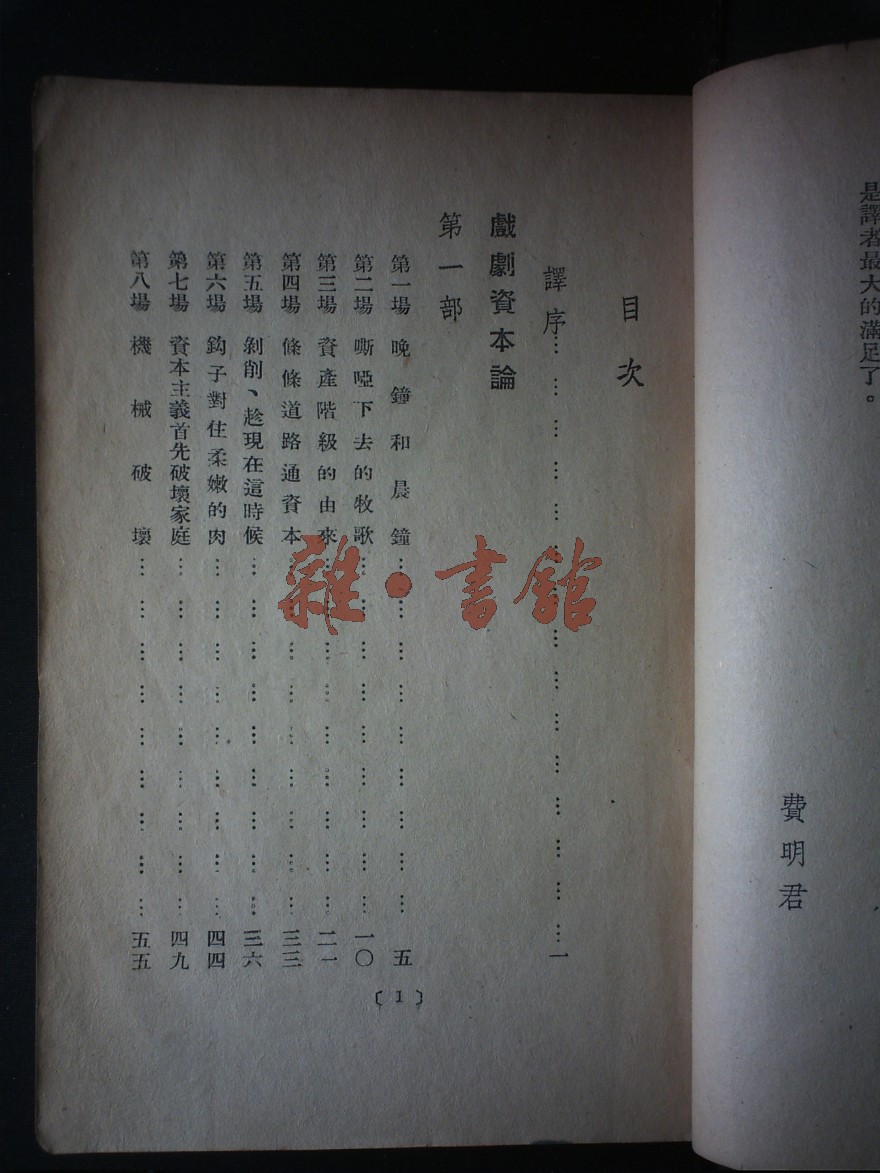 是譯者最大的滿足了。
費明君
目次
譯序………………………………一
戲劇資本論
第一部
第一場 晚鐘和晨鐘………………………五
第二場 嘶啞下去的牧歌………………………一〇
第三場 資產階級的由來………………………二一
第四場 條條道路通資本………………………三三
第五場 剝削、趁現在這時候………………………三六
第六場 鈎子對住柔嫩的肉………………………四四
第七場 資本主義首先破壞家庭………………………四九
第八場 機械破壞………………………五五
〔1〕
雜·書館